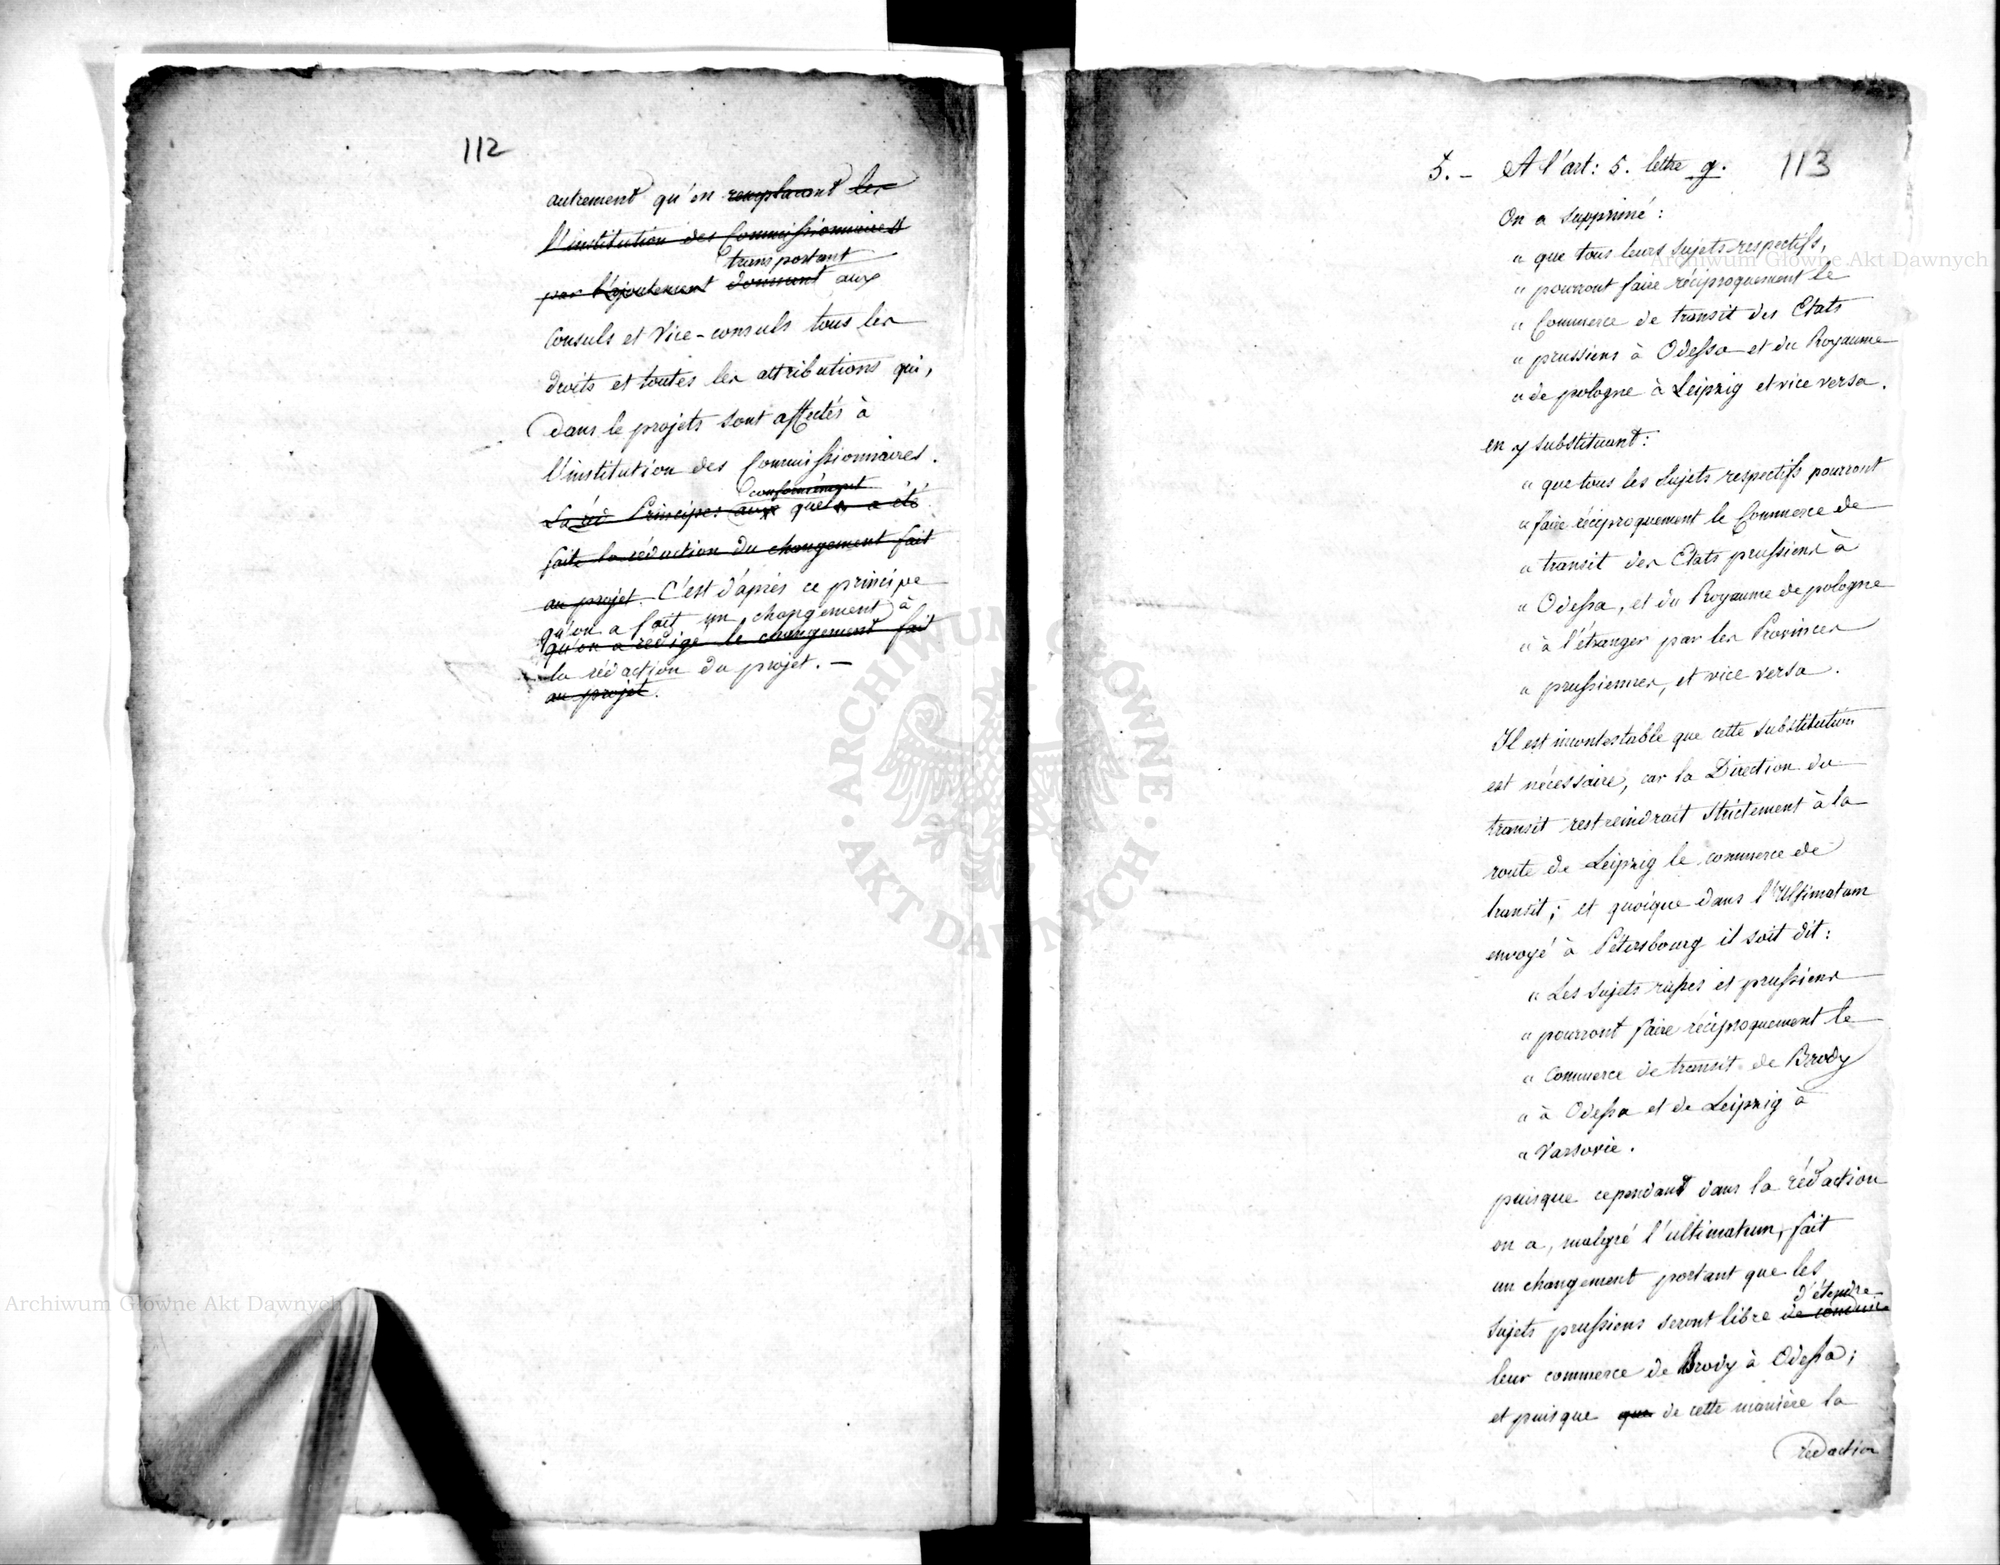 112
autrement qu'en remplaçant les
l'institution des Commissionnaires
transportant
par l'ajoutement donnant aux
Consuls et Vice-consuls tous les
droits et toutes les attributions qui,
dans le projets sont affectés à
l'institution des Commissionnaires.
conformément
Principes aux quels a été
faite la rédaction du changement fait
au projet. C'est d'après ce principe
qu'on a fait un changement à
qu'on a rédigé le changement fait
la rédaction du projet. —
au projet.
113
5. — A l'art: 5. lettre g.
On a supprimé:
" que tous leurs sujets respectifs,
" pourront faire réciproquement le
" Commerce de transit des Etats
" prussiens à Odessa et du Royaume
" de pologne à Leipzig et vice versa.
en y substituant:
" que tous les Sujets respectifs pourront
" faire réciproquement le Commerce de
" transit des Etats prussiens à
" Odessa, et du Royaume de pologne
" à l'étranger par les Provinces
" prussiennes, et vice versa.
Il est incontestable que cette substitution
est nécessaire, car la Direction du
transit restreindrait strictement à la
route de Leipzig le commerce de
transit; et quoique dans l'Ultimatum
envoyé à Pétersbourg il soit dit:
" Les sujets russes et prussiens
" pourront faire réciproquement le
" Commerce de transit de Brody
" à Odessa et de Leipzig à
" Varsovie.
puisque cependant dans la rédaction
on a, malgré l'ultimatum, fait
un changement portant que les
d'étendre
sujets prussiens seront libre de conduire
leur commerce de Brody à Odessa;
et puisque que de cette manière la
rédaction
Archiwum Główne Akt Dawnych
Archiwum Główne Akt Dawnych
ARCHIWUM GŁÓWNE
AKT DAWNYCH